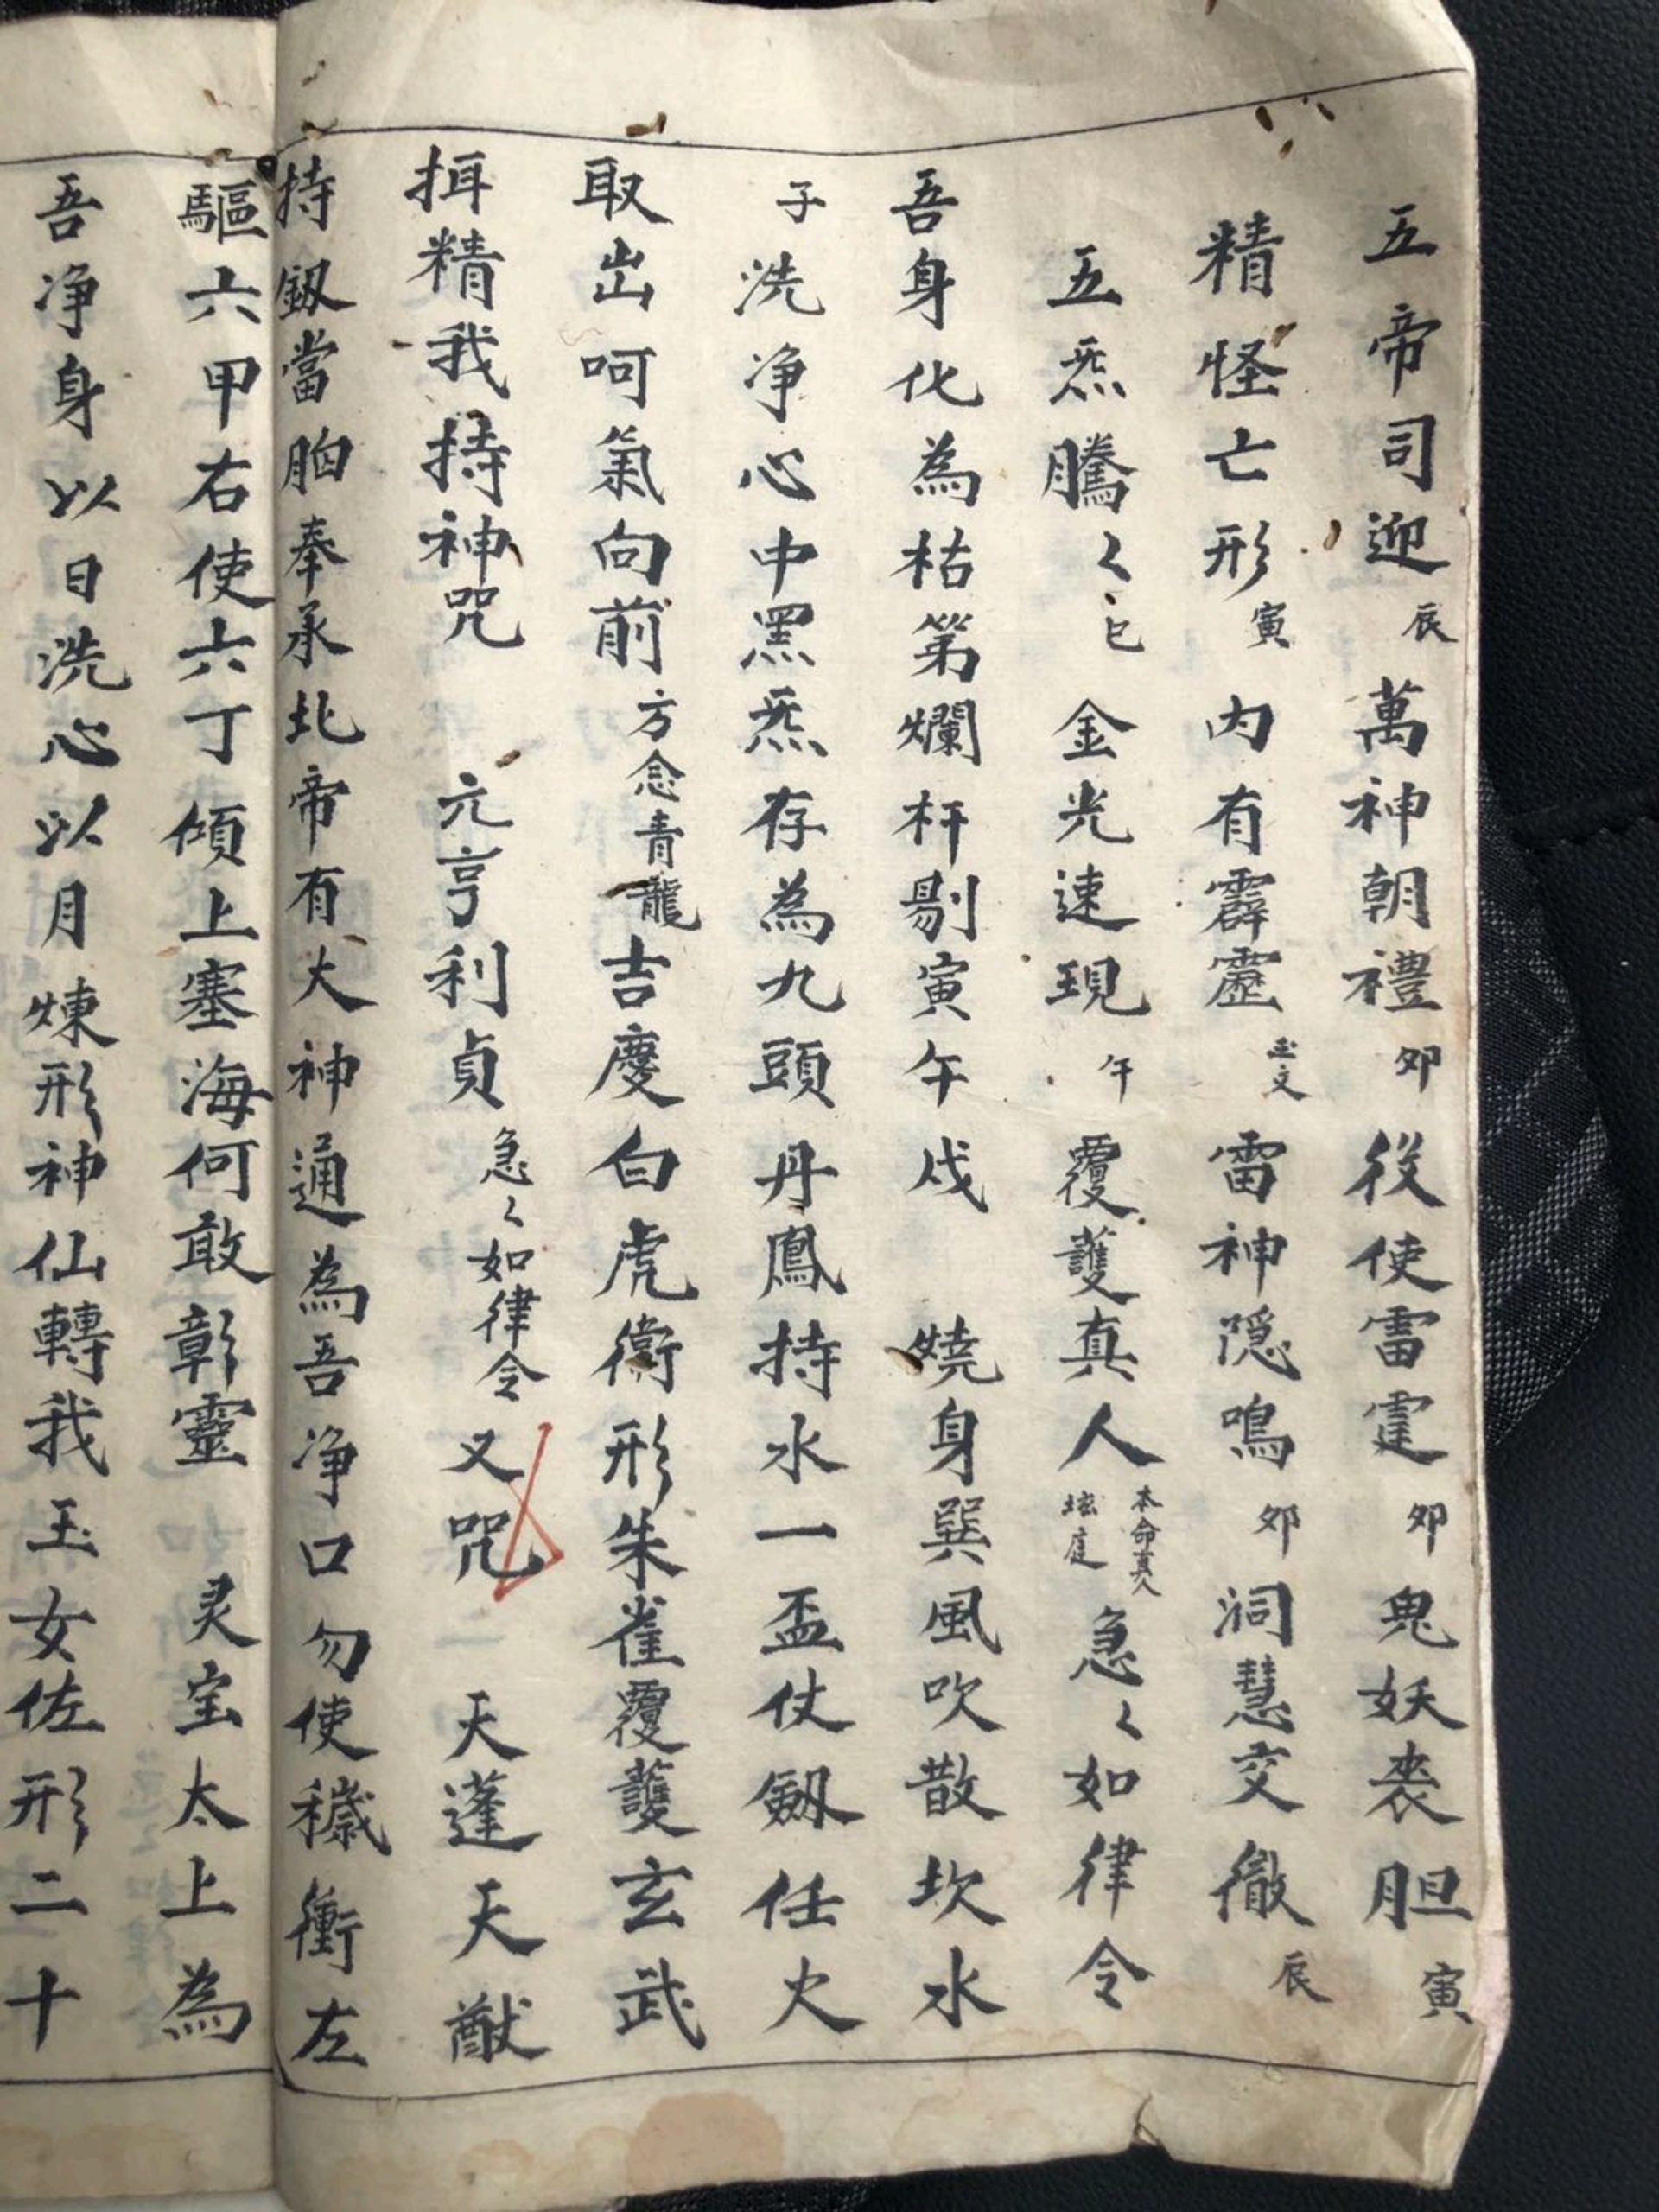 五帝司迎辰萬神朝禮卯役使雷霆卯鬼妖喪胆寅
精怪亡形寅内有霹靂玉文雷神隐鳴卯洞慧交徹辰
五炁騰〻巳金光速現午覆護真人本命真人坛庭急〻如律令
吾身化為枯第爛杆剔寅午戌 燒身巽風吹散坎水
子洗净心中黑炁存為九頭丹鳳持水一盃仗劔任火
取出呵氣向前方念青龍吉慶白虎衛形朱雀覆護玄武
揖精我持神咒 元亨利貞急〻如律令又咒 天蓬天猷
持劔當胸奉承北帝有大神通為吾净口勿使穢衝左
驅六甲右使六丁傾上塞海何敢彰靈 灵宝太上為
吾净身以日洗心以月煉形神仙轉我玉女佐形二十